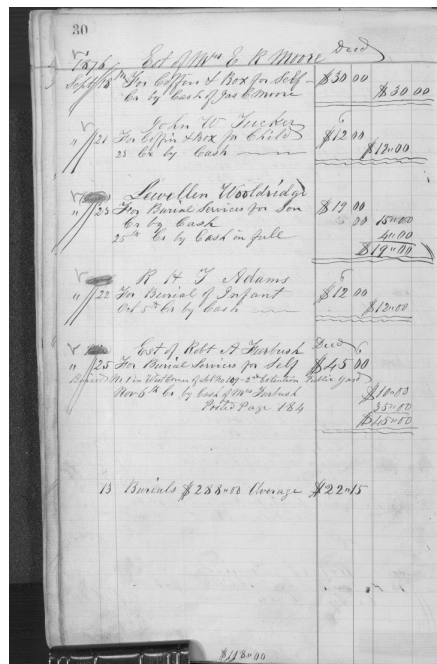 30
1876 Est of Mrs E R Moore Decd
Sept 18th For Coffin & Box for Self $30 00
Cr by Cash of Jas E Moore $30 00
John W Tucker
" 21 For Coffin & Box for Child $12 00
25 Cr by Cash $12"00
Lewellen Wooldridge
" 23 For Burial Services for Son $19 00
Cr by Cash 15"00
25th Cr by Cash in full 4"00
$19"00
R H T Adams
" 22 For Burial of Infant $12 00
Oct 5th Cr by Cash $12"00
Est of Robt A Furbush Decd
" 25 For Burial Services for Self $45 00
Buried No 1 in West Corner of No 109 2nd Extention Public Yard
Nov 6th Cr by Cash of Mrs Furbush $10"00
Posted Page 184 35"00
$45"00
13 Burials $288"00 Average $22"15
$118"00